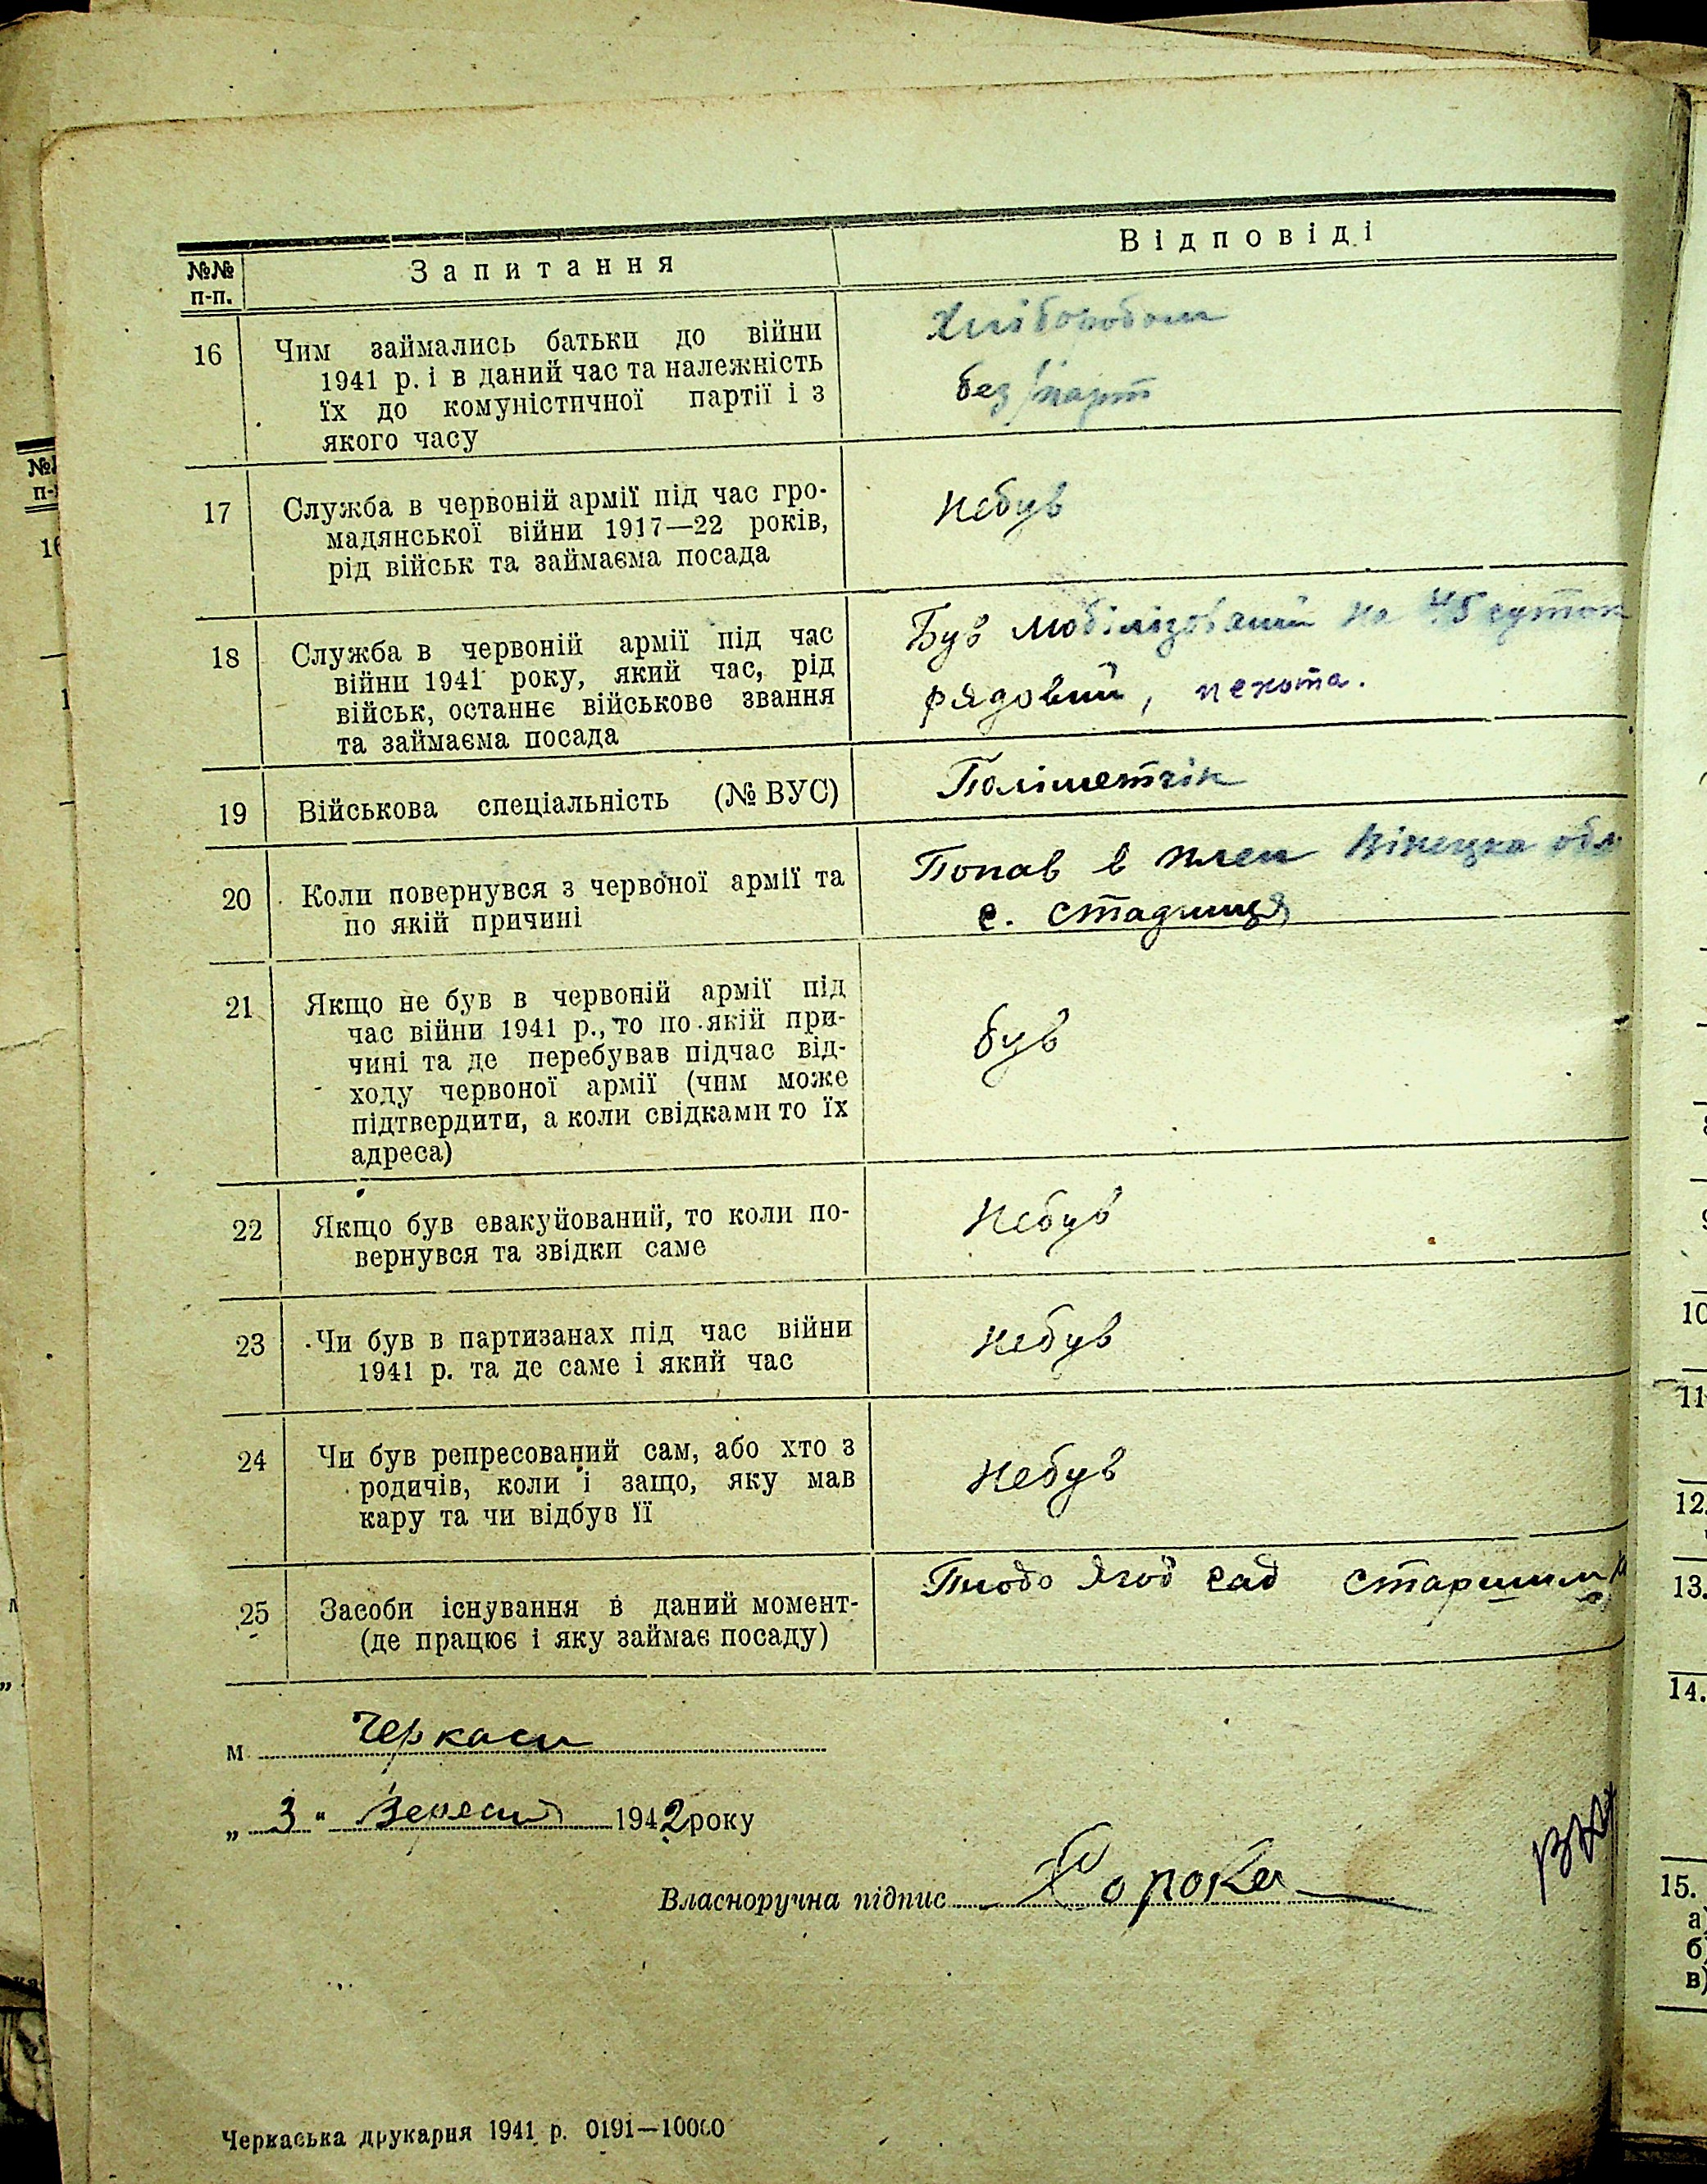 №№ п-п.
Запитання
Відповіді
16
Чим займались батьки до війни
1941 р. і в даний час та належність
їх до комуністичної партії і з
якого часу
Хліборобом
без/парт
17
Служба в червоній армії під час гро-
мадянської війни 1917—22 років,
рід військ та займаєма посада
небув
18
Служба в червоній армії під час
війни 1941 року, який час, рід
військ, останнє військове звання
та займаєма посада
Був мобілізований на 45 суток
рядовий, пехота.
19
Військова спеціальність (№ ВУС)
20
Коли повернувся з червоної армії та
по якій причині
Попав в плен Вінецка обл
с. стадниця
21
Якщо не був в червоній армії під
час війни 1941 р., то по якій при-
чині та де перебував підчас від-
ходу червоної армії (чим може
підтвердити, а коли свідками то їх
адреса)
був
22
Якщо був евакуйований, то коли по-
вернувся та звідки саме
небув
23
Чи був в партизанах під час війни
1941 р. та де саме і який час
небув
24
Чи був репресований сам, або хто з
родичів, коли і защо, яку мав
кару та чи відбув її
небув
25
Засоби існування в даний момент-
(де працює і яку займає посаду)
Плодо Ягод сад старшим
м Черкаси
„ 3 " Вересня 1942 року
Власноручна підпис
Черкаська друкарня 1941 р. 0191—10000
10
11
12.
13.
14.
15.
а)
б)
в)